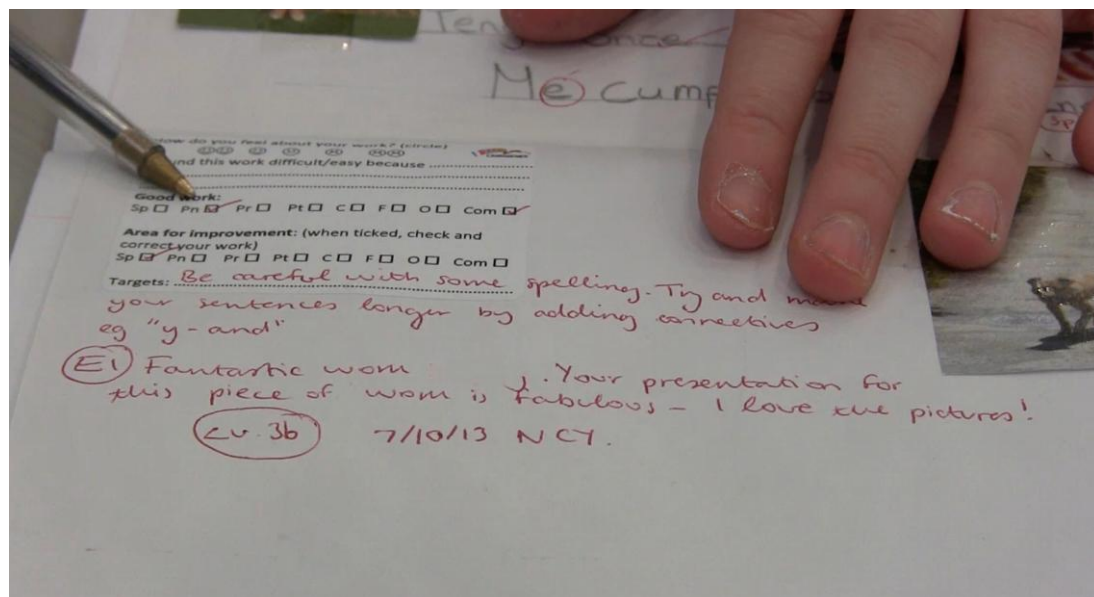 Me cump
How do you feel about your work? (circle)
und this work difficult/easy because
Good work:
Sp Pn Pr Pt C F O Com
Area for improvement: (when ticked, check and
correct your work)
Sp Pn Pr Pt C F O Com
Targets: Be careful with some spelling. Try and
your sentences longer by adding connectives
eg "y - and"
E1 Fantastic work . Your presentation for
this piece of work is fabulous - I love the pictures!
Lv. 3b 7/10/13 NCY.